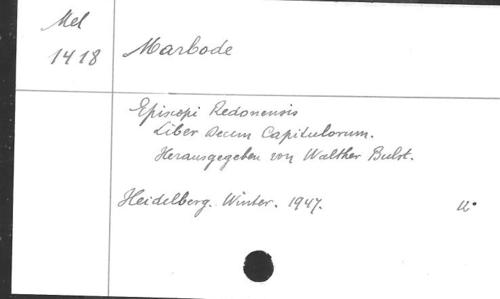 Mel
1418
Marbode
Episcopi Redonensis
Liber Decem Capitulorum.
Herausgegeben von Walther Bulst.
Heidelberg. Winter. 1947.